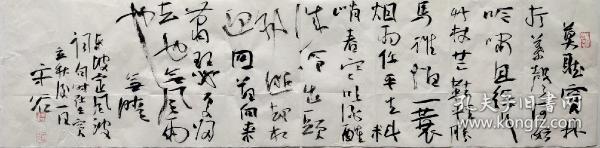 莫聽穿林
打葉聲何妨
吟嘯且徐行
竹杖芒鞋輕勝
馬誰怕一蓑
煙雨任平生料
峭春風吹酒醒
微冷山頭
斜照却相
迎回首向来
蕭瑟處歸
去也無風雨
也無晴
坡定風波
詞句
立秋後一日
孔夫子旧书网
www.kongfz.com